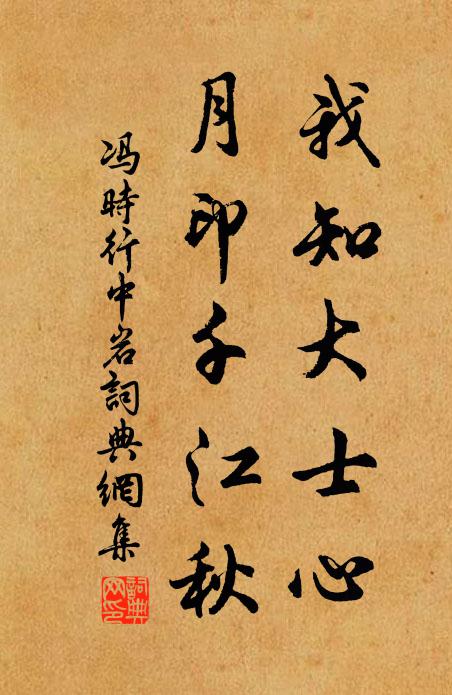 我知大士心
月印千江秋
冯時行中岩詞典網集
詞典網印